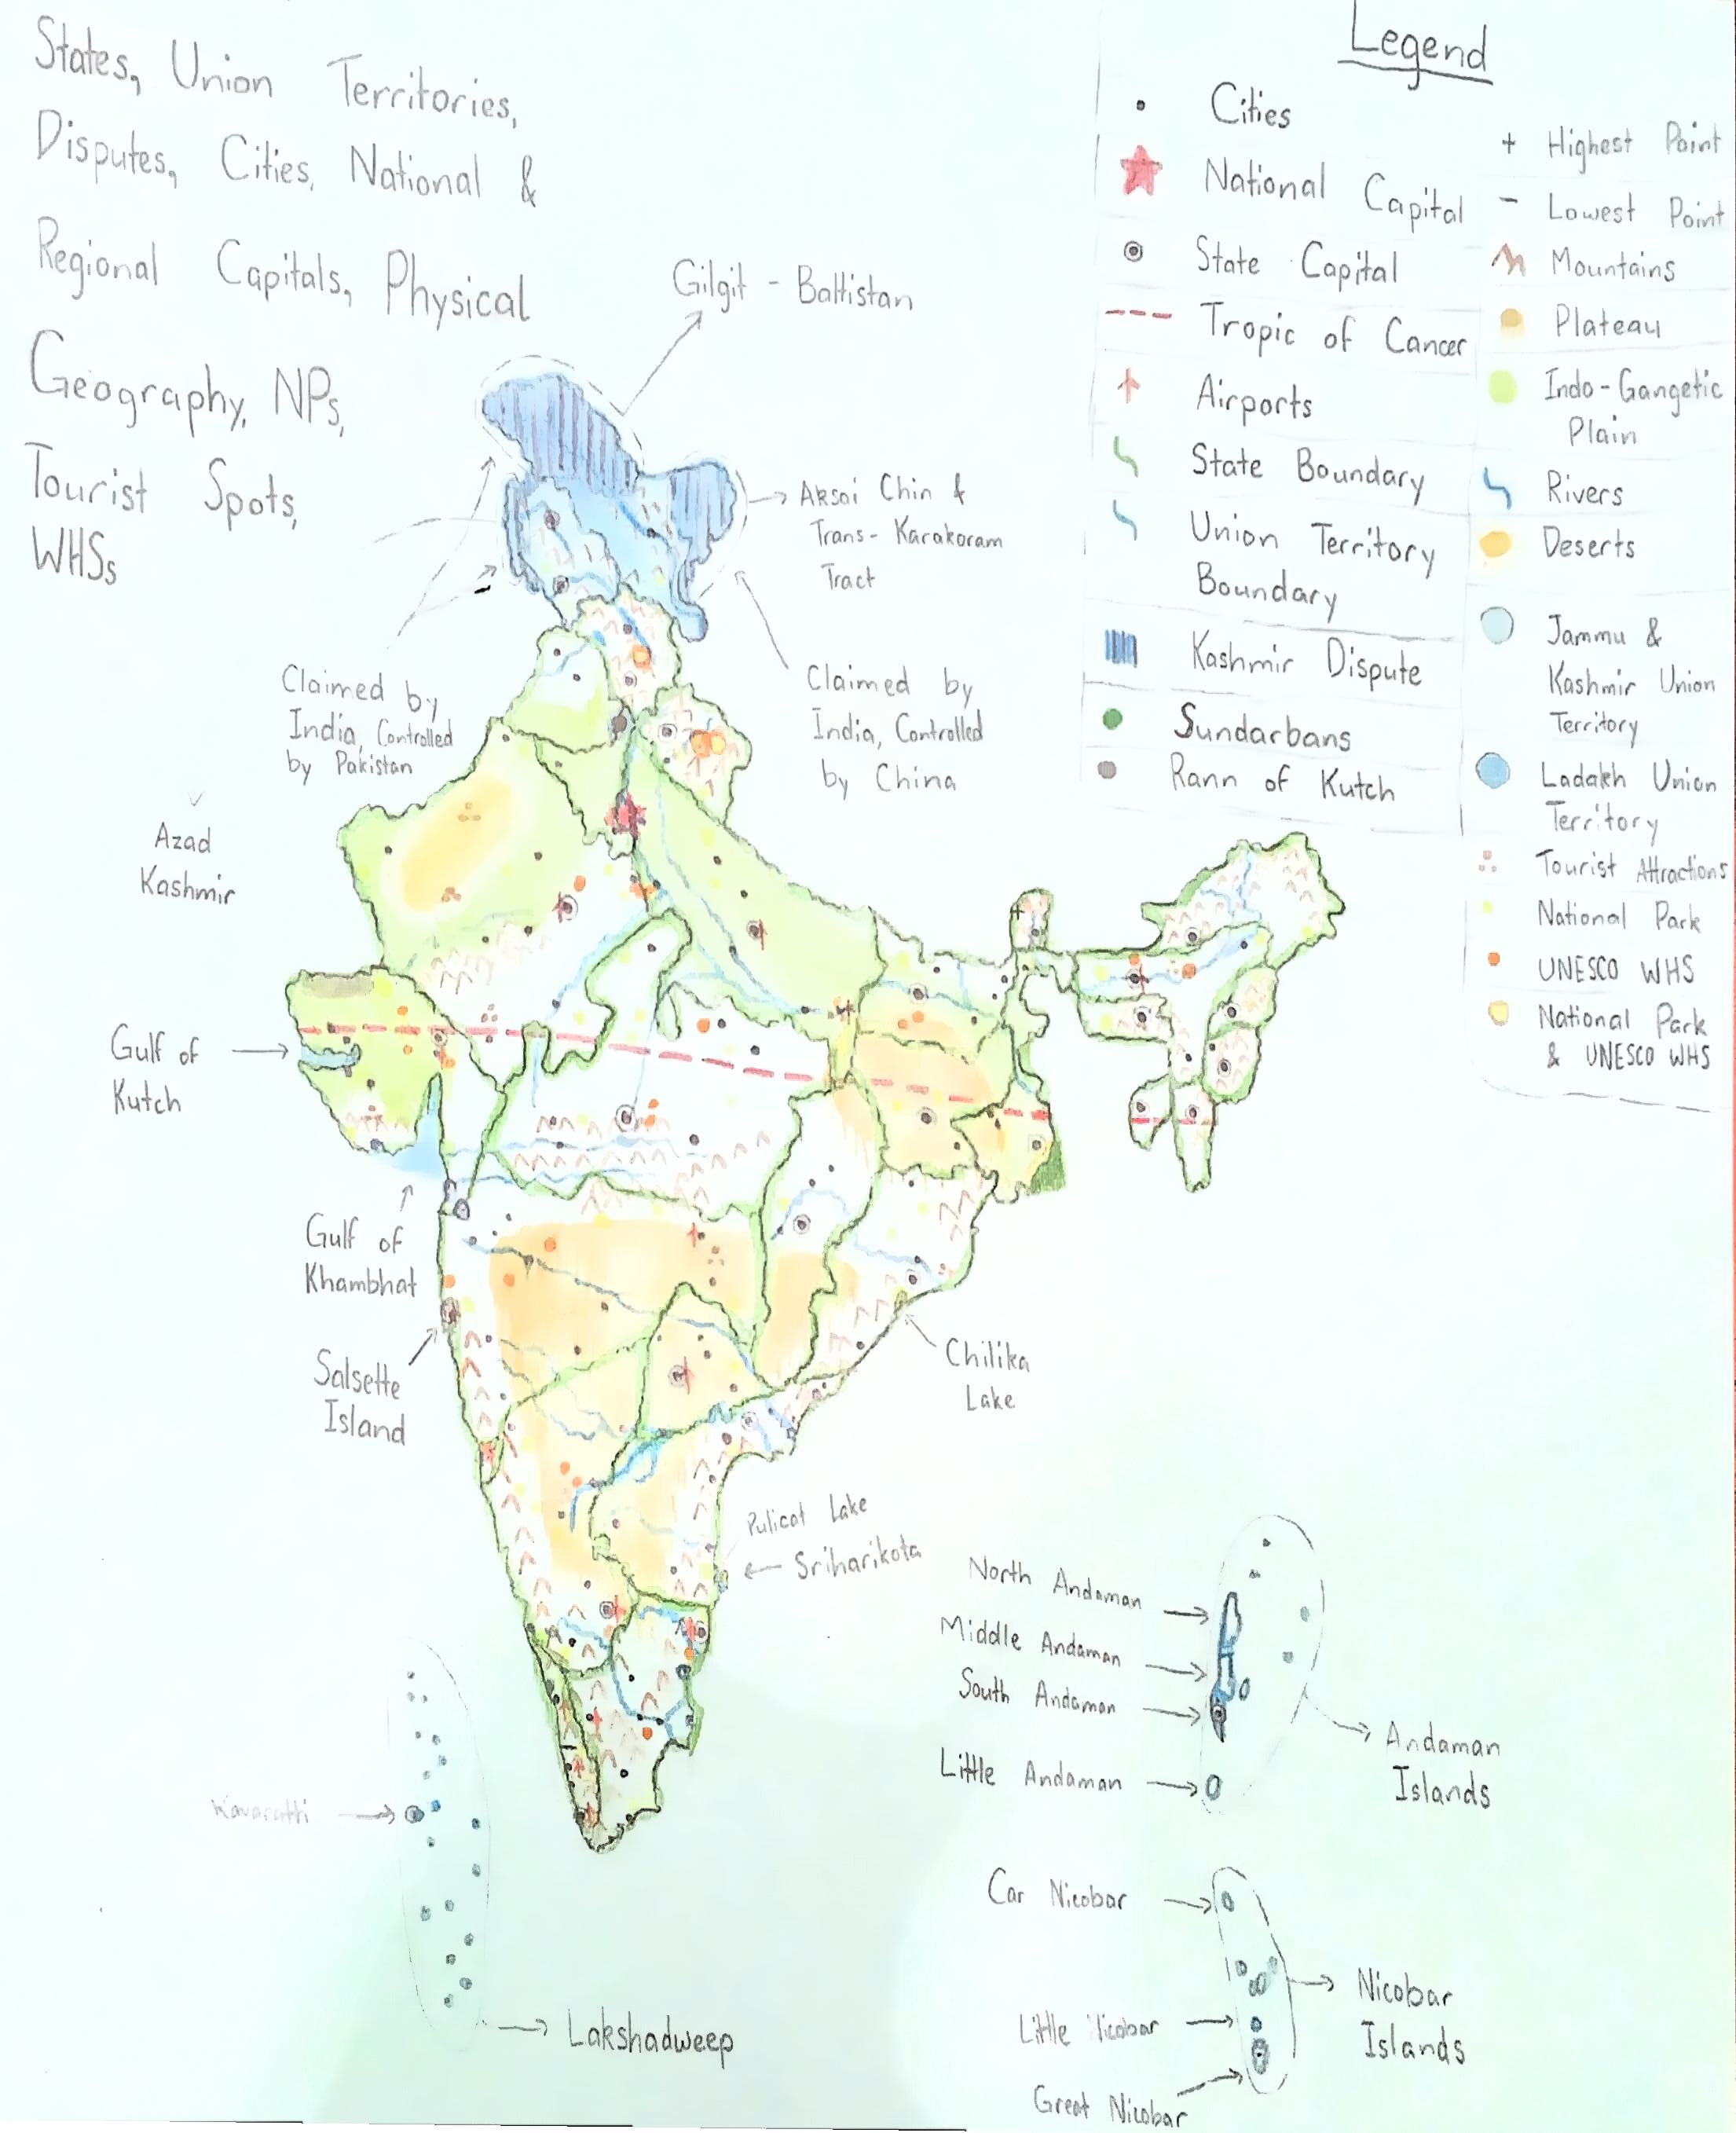 States, Union Territories,
Disputes, Cities, National &
Regional Capitals, Physical
Geography, NPs,
Tourist Spots,
WHSs
Gilgit - Baltistan
Aksai Chin &
Trans-Karakoram
Tract
Claimed by
India, Controlled
by Pakistan
Claimed by
India, Controlled
by China
Azad
Kashmir
Gulf of
Kutch
Gulf of
Khambhat
Salsette
Island
Chilika
Lake
Pulicat Lake
Sriharikota
Kavaratti
Lakshadweep
North Andaman
Middle Andaman
South Andaman
Little Andaman
Andaman
Islands
Car Nicobar
Little Nicobar
Great Nicobar
Nicobar
Islands
Legend
Cities
National Capital
State Capital
Tropic of Cancer
Airports
State Boundary
Union Territory
Boundary
Kashmir Dispute
Sundarbans
Rann of Kutch
+ Highest Point
- Lowest Point
Mountains
Plateau
Indo-Gangetic
Plain
Rivers
Deserts
Jammu &
Kashmir Union
Territory
Ladakh Union
Territory
Tourist Attractions
National Park
UNESCO WHS
National Park
& UNESCO WHS